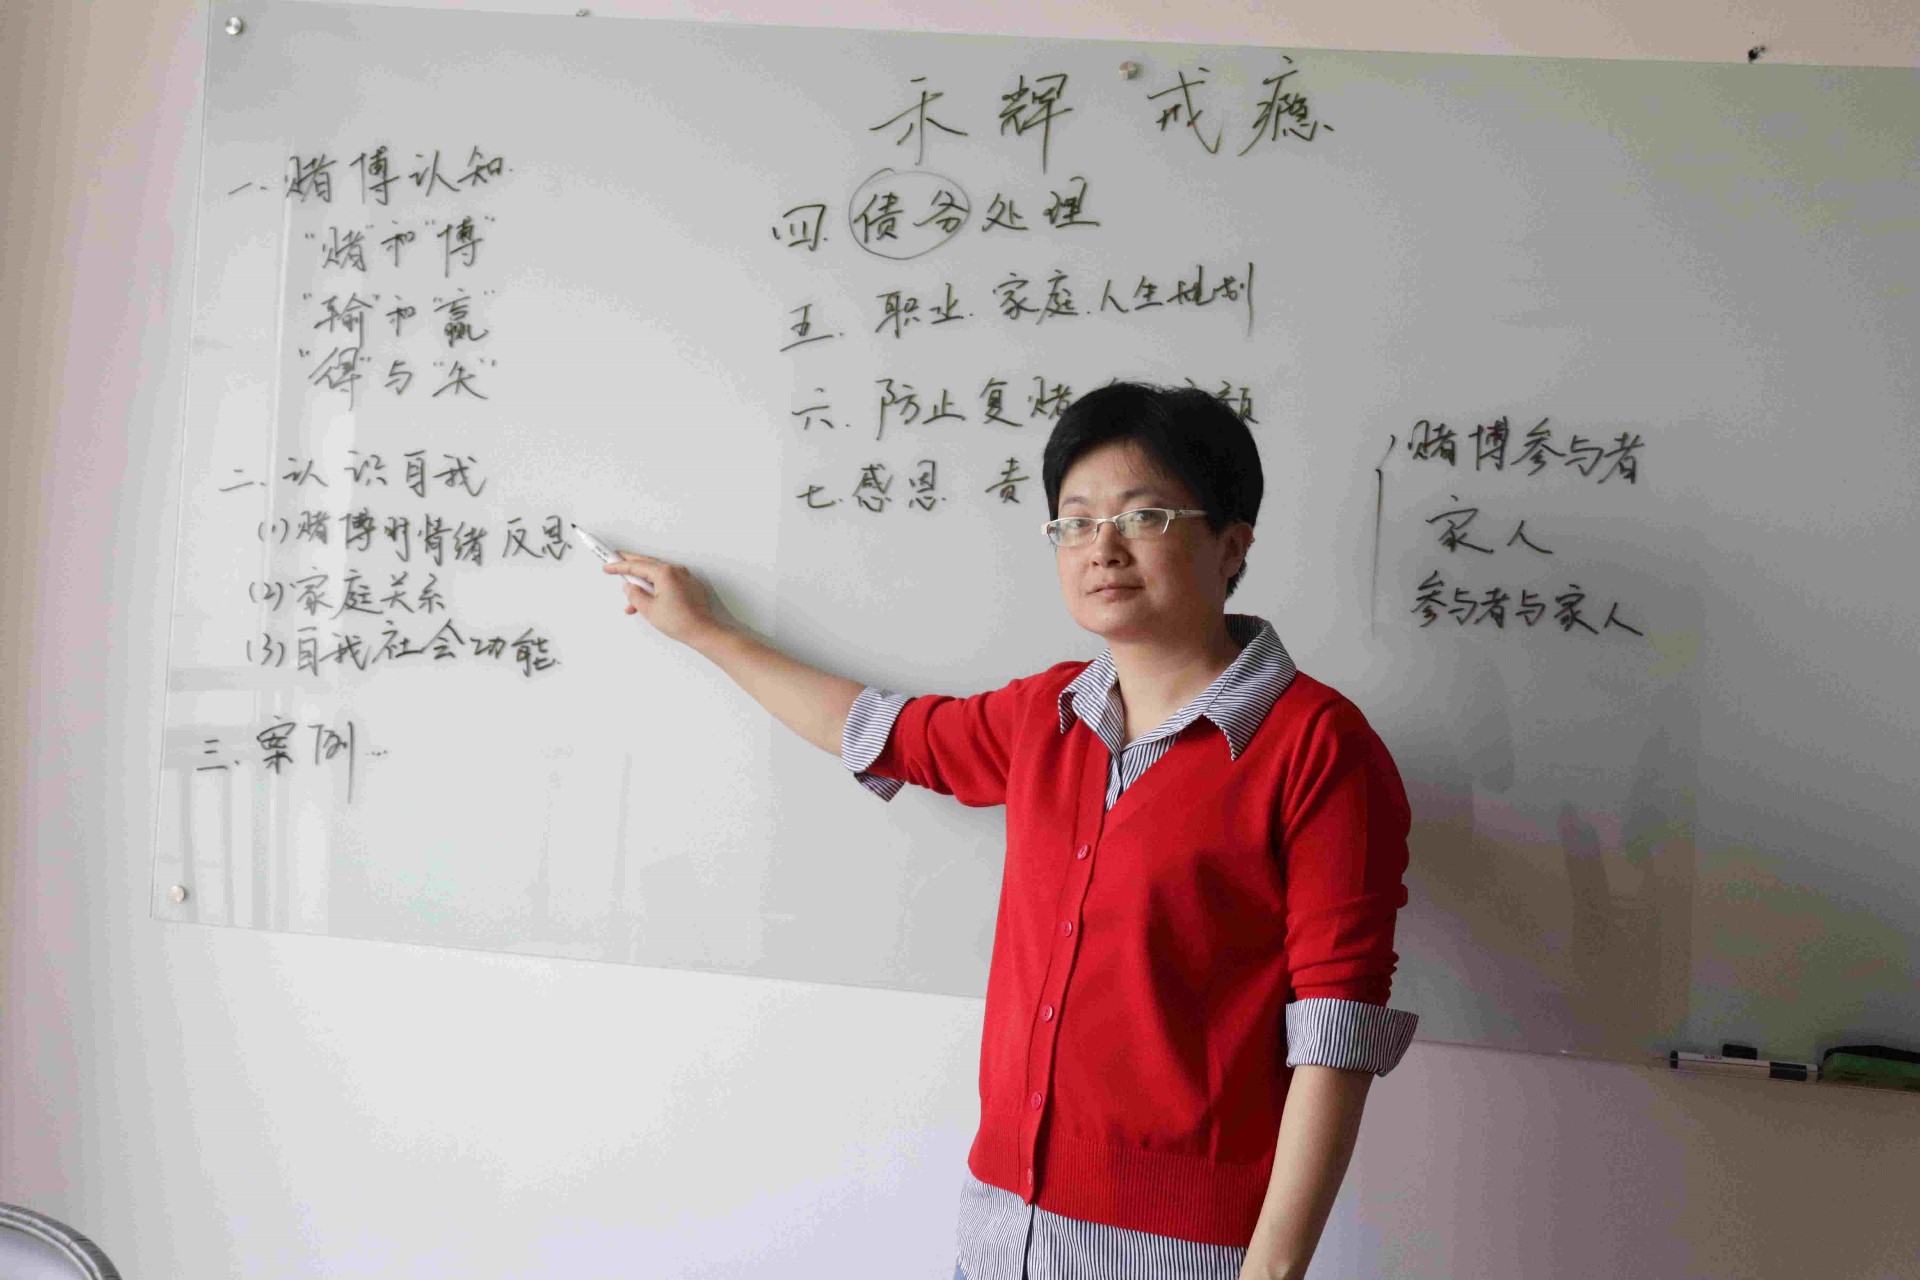 禾辉 戒瘾
一.赌博认知
"赌"和"博"
"输"和"赢"
"得"与"失"
二.认识自我
(1)赌博时情绪反思
(2)家庭关系
(3)自我社会功能
三.案例…
四.债务处理
五.职业.家庭.人生规划
六.防止复赌
七.感恩 责
赌博参与者
家人
参与者与家人